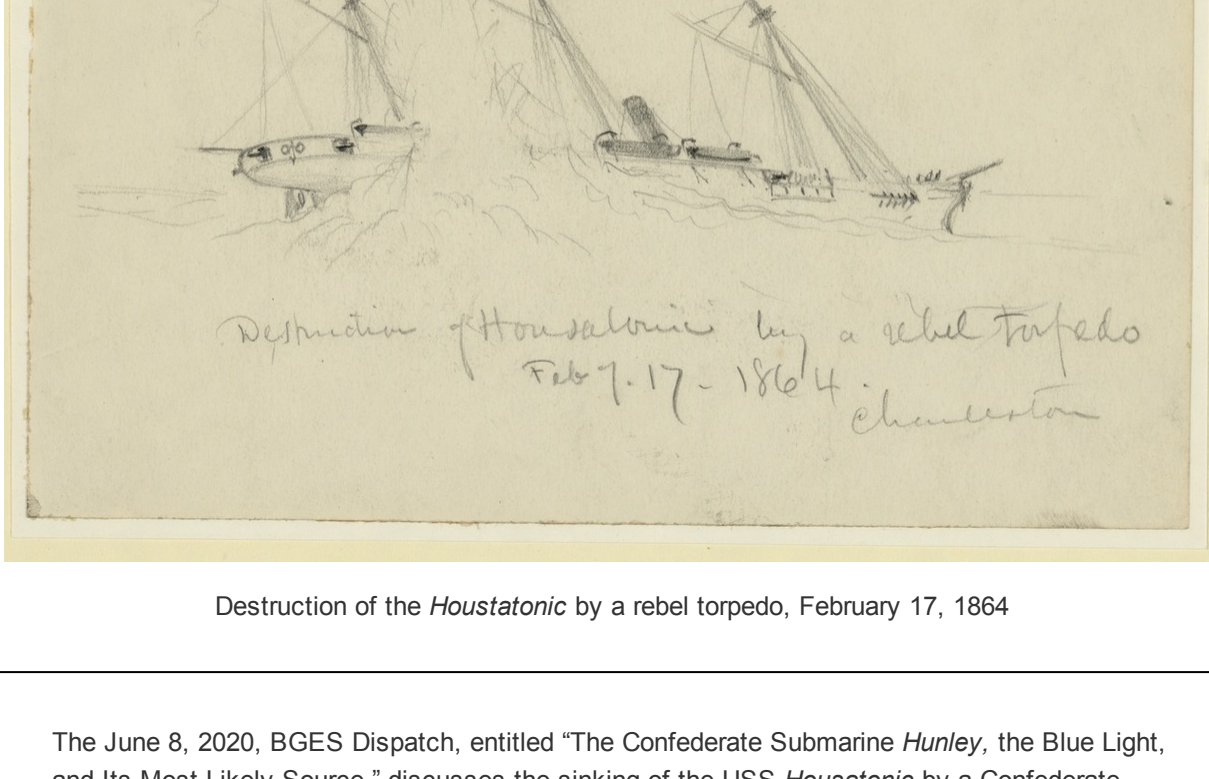 Destruction of Housatonic by a rebel torpedo
Feby. 17 - 1864.
Charleston
Destruction of the Houstatonic by a rebel torpedo, February 17, 1864
The June 8, 2020, BGES Dispatch, entitled “The Confederate Submarine Hunley, the Blue Light,
and Its Most Likely Source,” discusses the sinking of the USS Housatonic by a Confederate